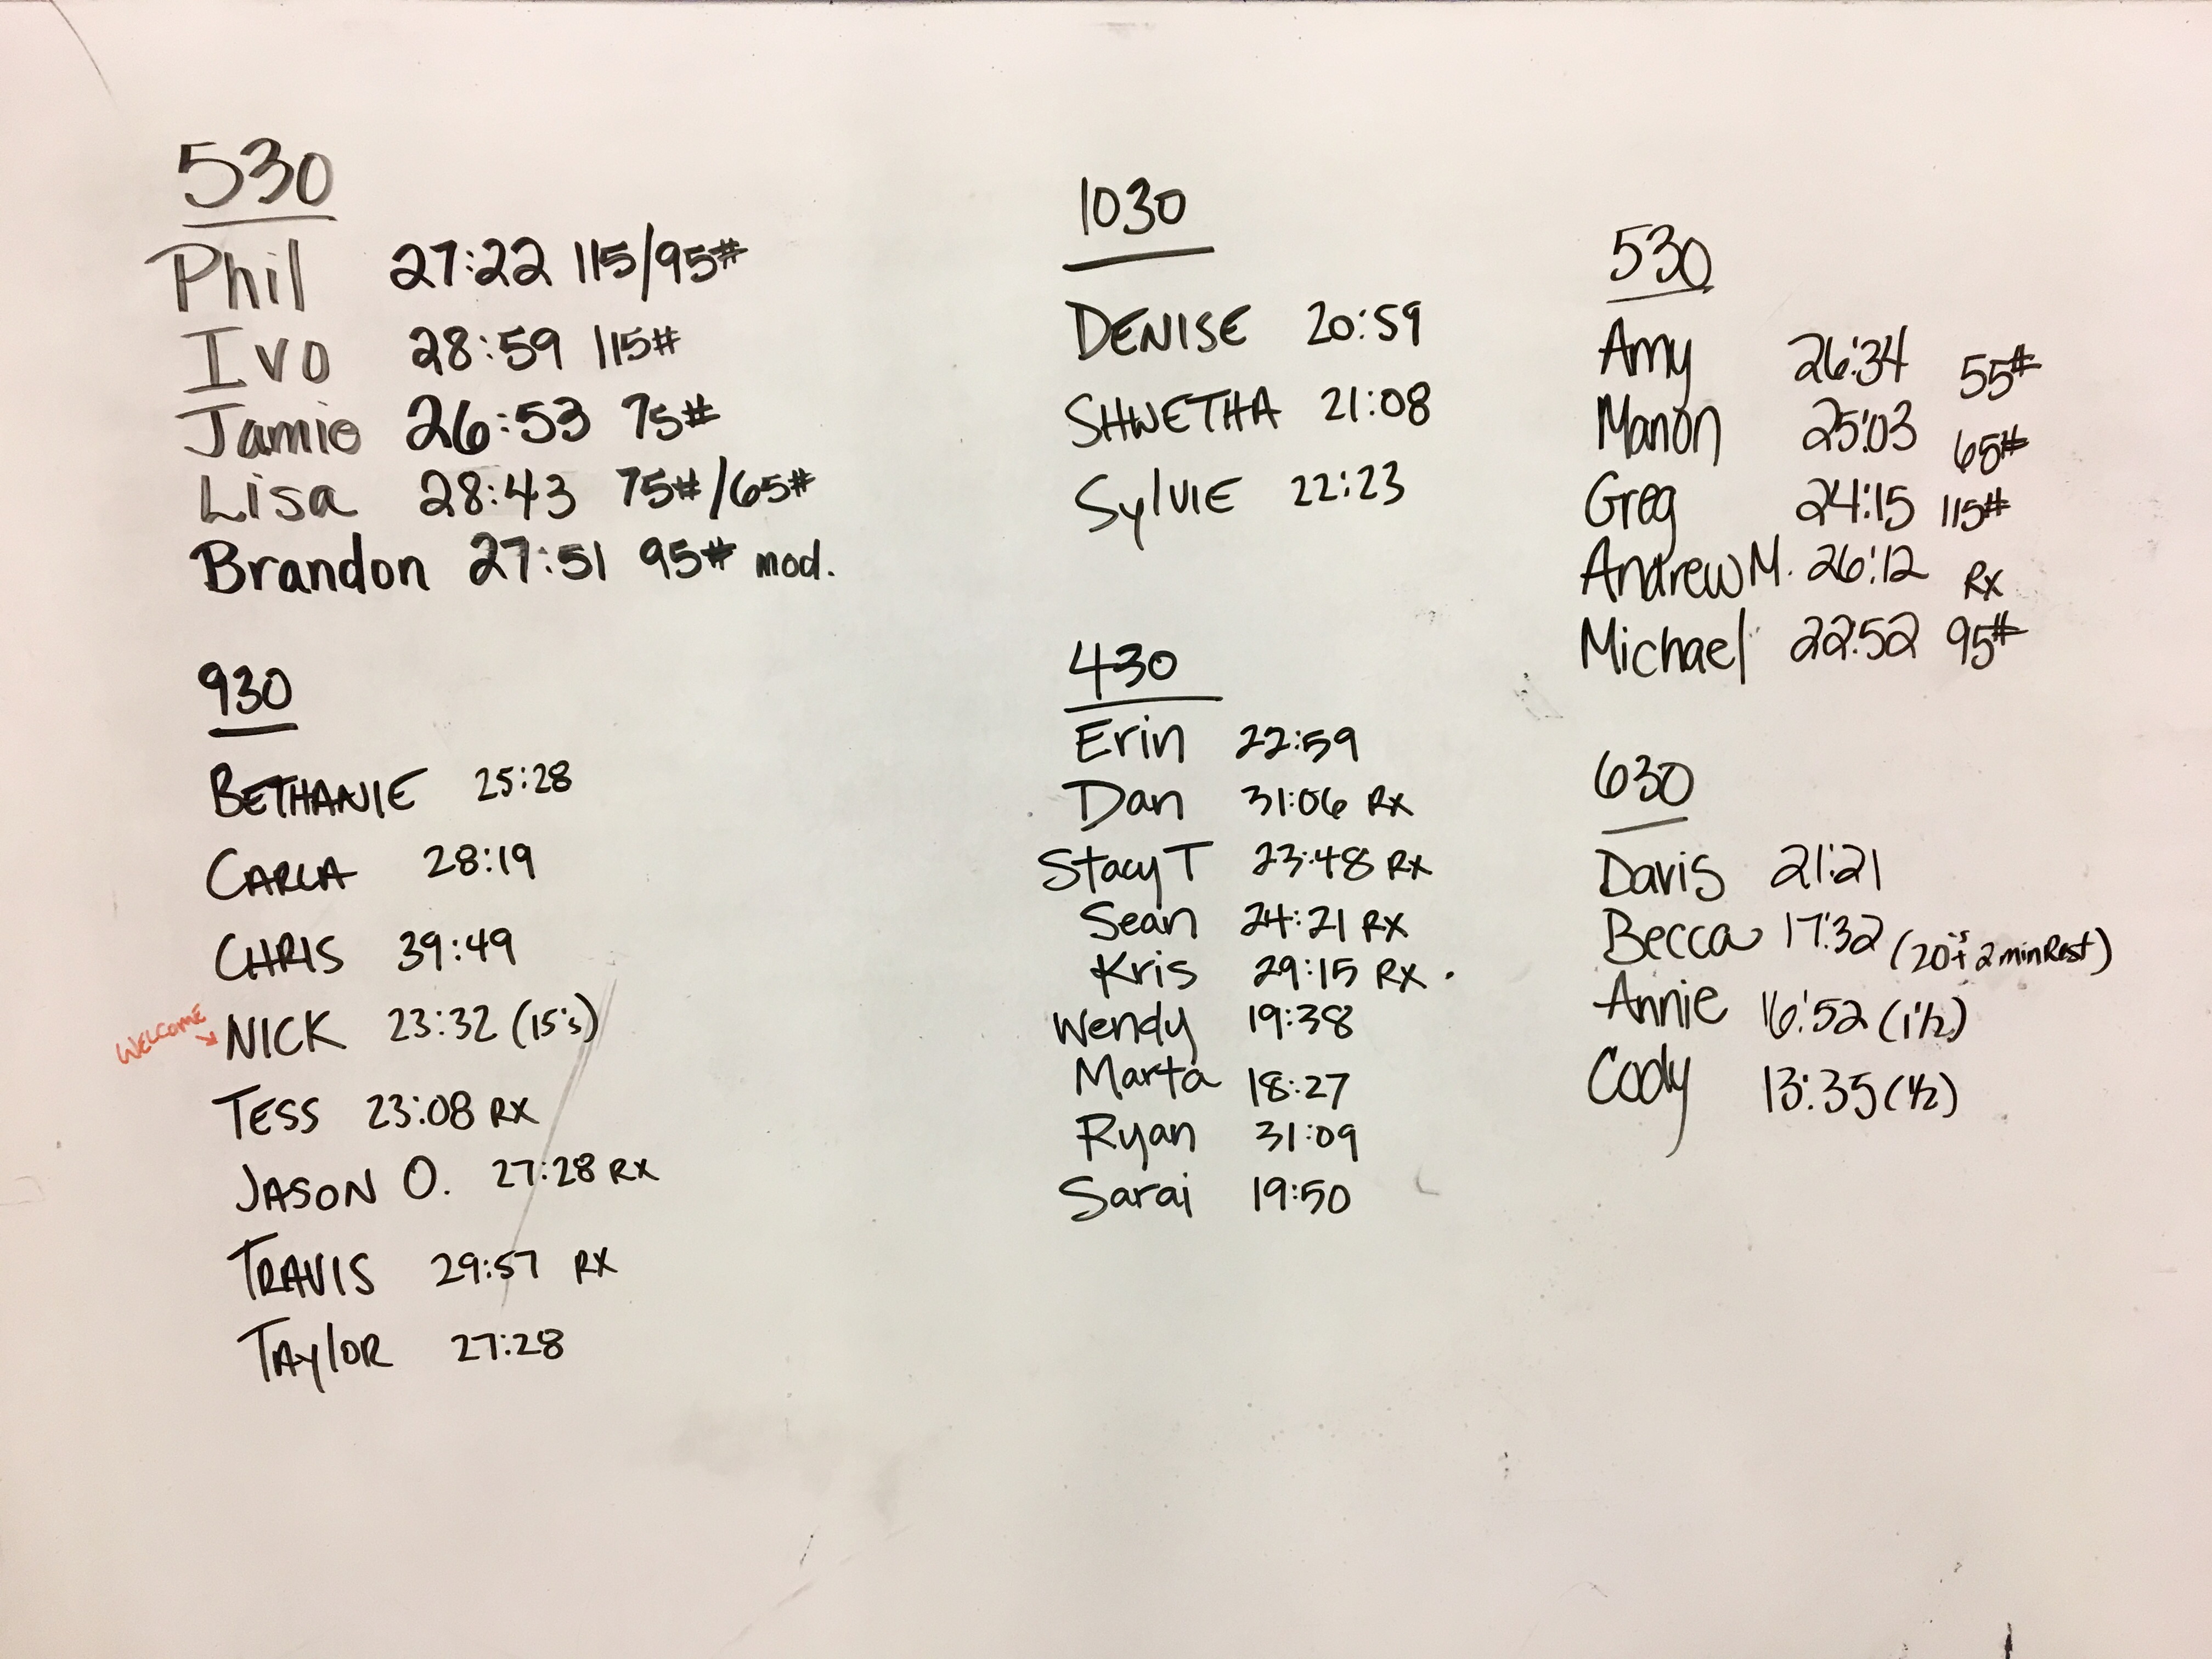 530
Phil 27:22 115/95#
Ivo 28:59 115#
Jamie 26:53 75#
Lisa 28:43 75#/65#
Brandon 27:51 95# mod.
930
BETHANIE 25:28
CARLA 28:19
CHRIS 39:49
WELCOME → NICK 23:32 (15's)
TESS 23:08 RX
JASON O. 27:28 RX
TRAVIS 29:57 RX
TAylOR 27:28
1030
DENISE 20:59
SHWETHA 21:08
SylVIE 22:23
430
Erin 22:59
Dan 31:06 RX
Stacy T 23:48 RX
Sean 24:21 RX
Kris 29:15 RX
Wendy 19:38
Marta 18:27
Ryan 31:09
Sarai 19:50
530
Amy 26:34 55#
Manon 25:03 65#
Greg 24:15 115#
Andrew M. 26:12 Rx
Michael 22:52 95#
630
Davis 21:21
Becca 17:32 (20's + 2 min Rest)
Annie 16:52 (1/2)
Cody 13:35 (1/2)